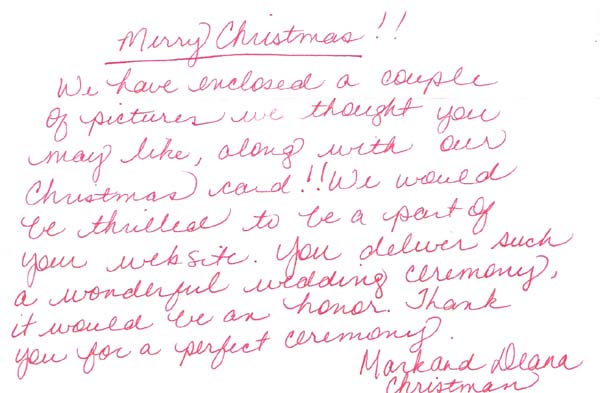 Merry Christmas!!
We have enclosed a couple
of pictures we thought you
may like, along with our
Christmas card!! We would
be thrilled to be a part of
your website. You deliver such
a wonderful wedding ceremony,
it would be an honor. Thank
you for a perfect ceremony.
Mark and Deana
Christman